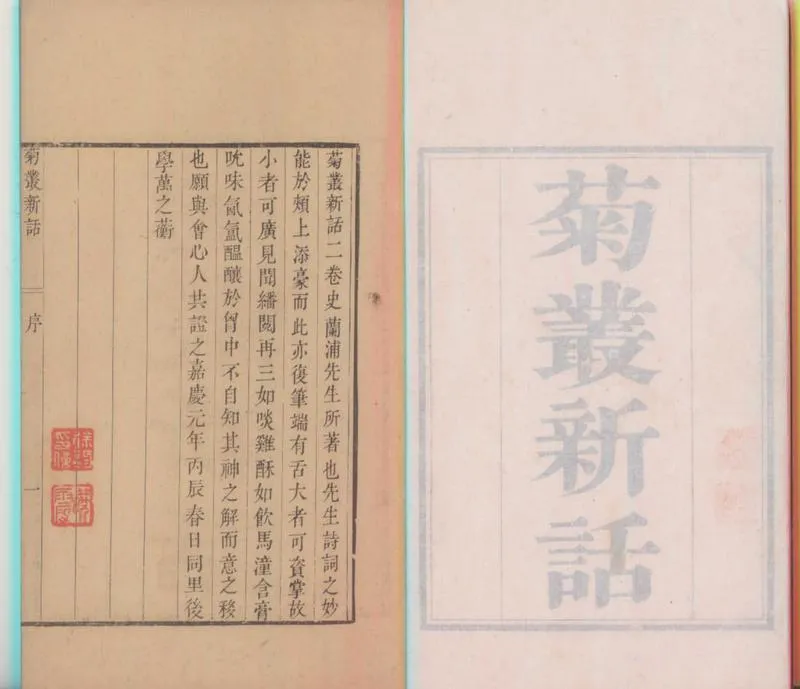 菊叢新話
菊叢新話二卷史蘭浦先生所著也先生詩詞之妙
能於頰上添豪而此亦復筆端有舌大者可資掌故
小者可廣見聞繙閱再三如啖雞酥如飲馬潼含膏
吮味氤氳醞釀於胷中不自知其神之解而意之移
也願與會心人共證之嘉慶元年丙辰春日同里後
學萬之蘅
菊叢新話
序
一